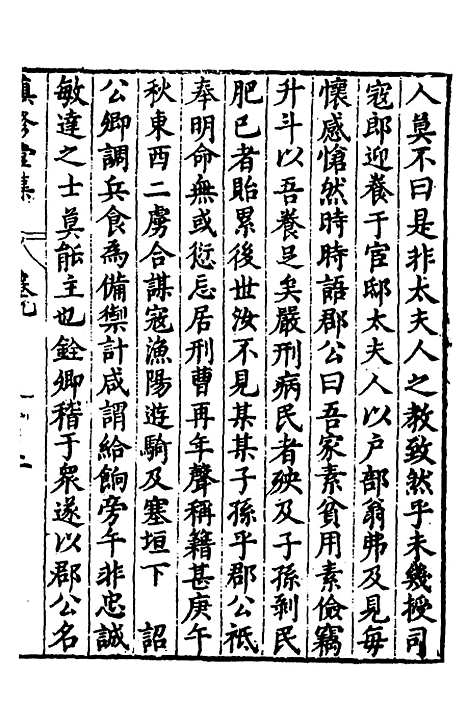 人莫不曰是非太夫人之教致然乎未幾授司
寇郎迎養于官邸太夫人以户部翁弗及見每
懷感愴然時時語郡公曰吾家素貧用素儉竊
升斗以吾養足矣嚴刑病民者殃及子孫剥民
肥已者貽累後世汝不見某某子孫乎郡公祗
奉明命無或愆忘居刑曹再年聲稱籍甚庚午
秋東西二虜合謀寇漁陽遊騎及塞垣下 詔
公卿調兵食為備禦計咸謂給餉旁午非忠誠
敏達之士莫能主也銓卿稽于衆遂以郡公名
堂集 卷九